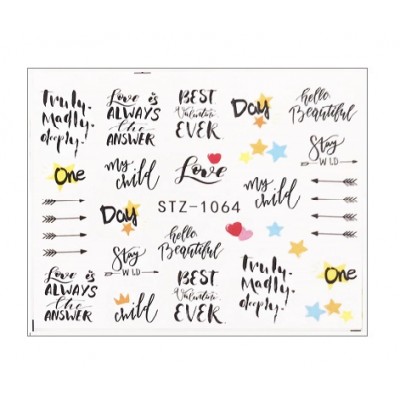 Truly.
Madly.
deeply.
Love is
ALWAYS
the
ANSWER
BEST
Valentine
EVER
Day
hello
Beautiful
Stay
WILD
One
my
child
Love
my
child
STZ-1064
Day
Stay
WILD
hello
Beautiful
Love is
ALWAYS
the
ANSWER
child
BEST
Valentine
EVER
Truly.
Madly.
deeply.
One